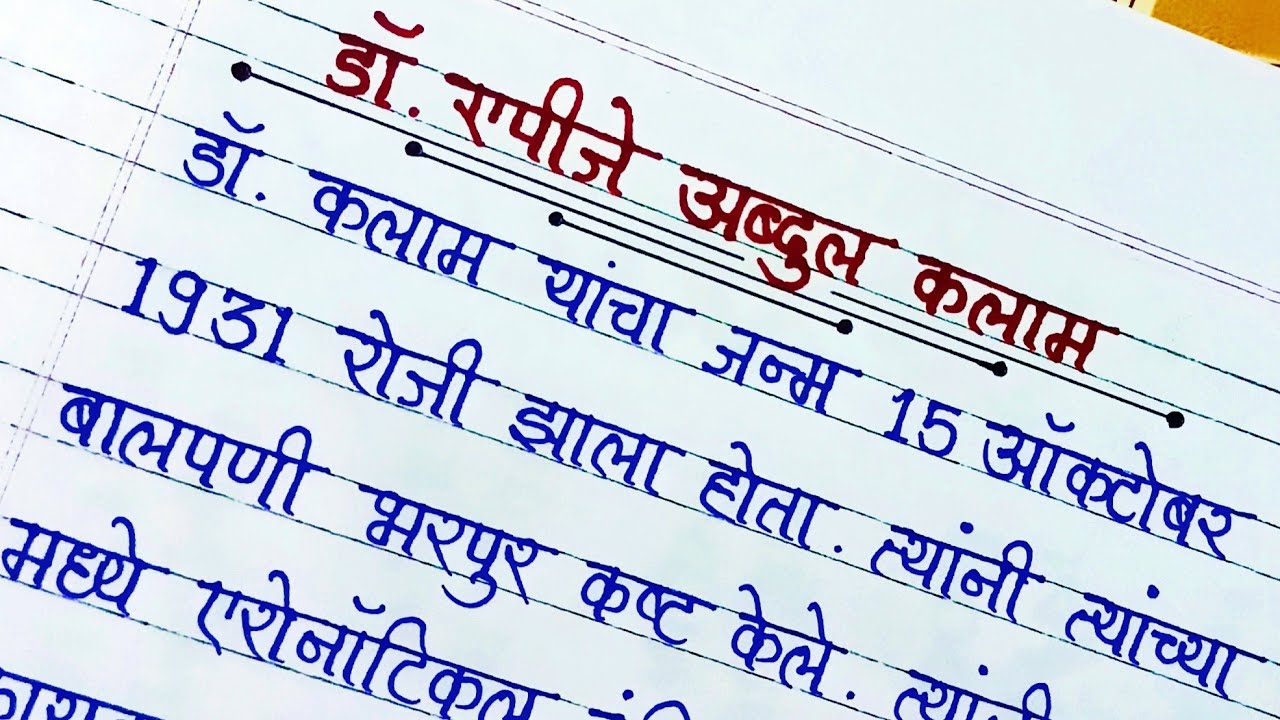 डॉ. एपीजे अब्दुल कलाम
डॉ. कलाम यांचा जन्म 15 ऑक्टोबर
1931 रोजी झाला होता. त्यांनी त्यांच्या
बालपणी भरपुर कष्ट केले. त्यांनी
मध्ये एरोनॉटिकल